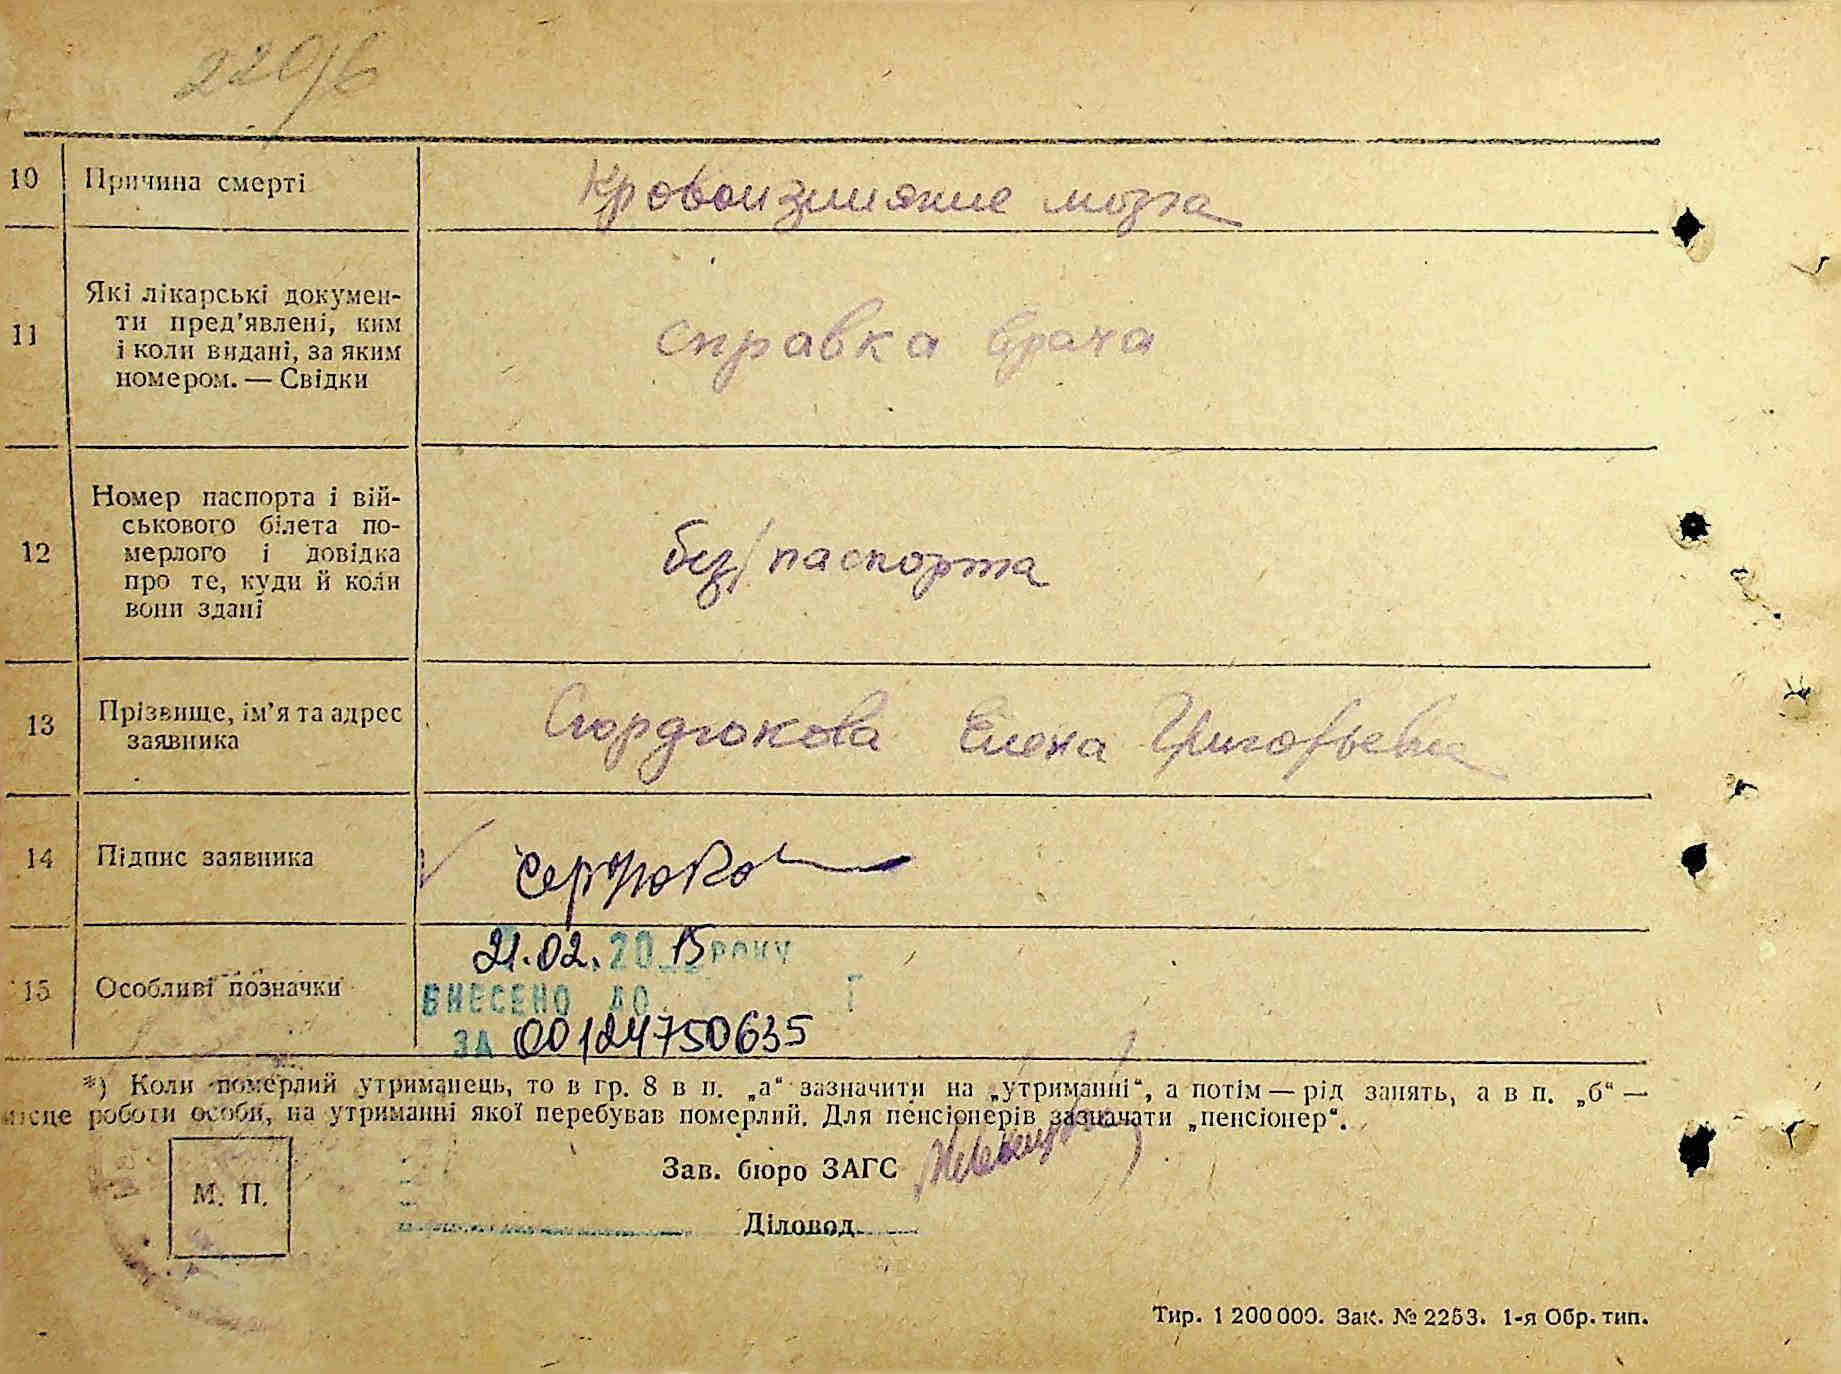 2296
10 Причина смерті Кровоизлияние мозга
11 Які лікарські докумен-
ти пред'явлені, ким
і коли видані, за яким
номером. — Свідки
справка врача
12 Номер паспорта і вій-
ськового білета по-
мерлого і довідка
про те, куди й коли
вони здані
без/паспорта
13 Прізвище, ім'я та адрес
заявника
Сюрдюкова Елена Григорьевна
14 Підпис заявника
21.02.2015 РОКУ
15 Особливі позначки
ВНЕСЕНО ДО Г
ЗА 00124750635
*) Коли померлий утриманець, то в гр. 8 в п. „а“ зазначити на „утриманні“, а потім — рід занять, а в п. „б“ —
місце роботи особи, на утриманні якої перебував померлий. Для пенсіонерів зазначати „пенсіонер“.
М. П.
Зав. бюро ЗАГС
Діловод
Тир. 1 200 000. Зак. № 2253. 1-я Обр. тип.